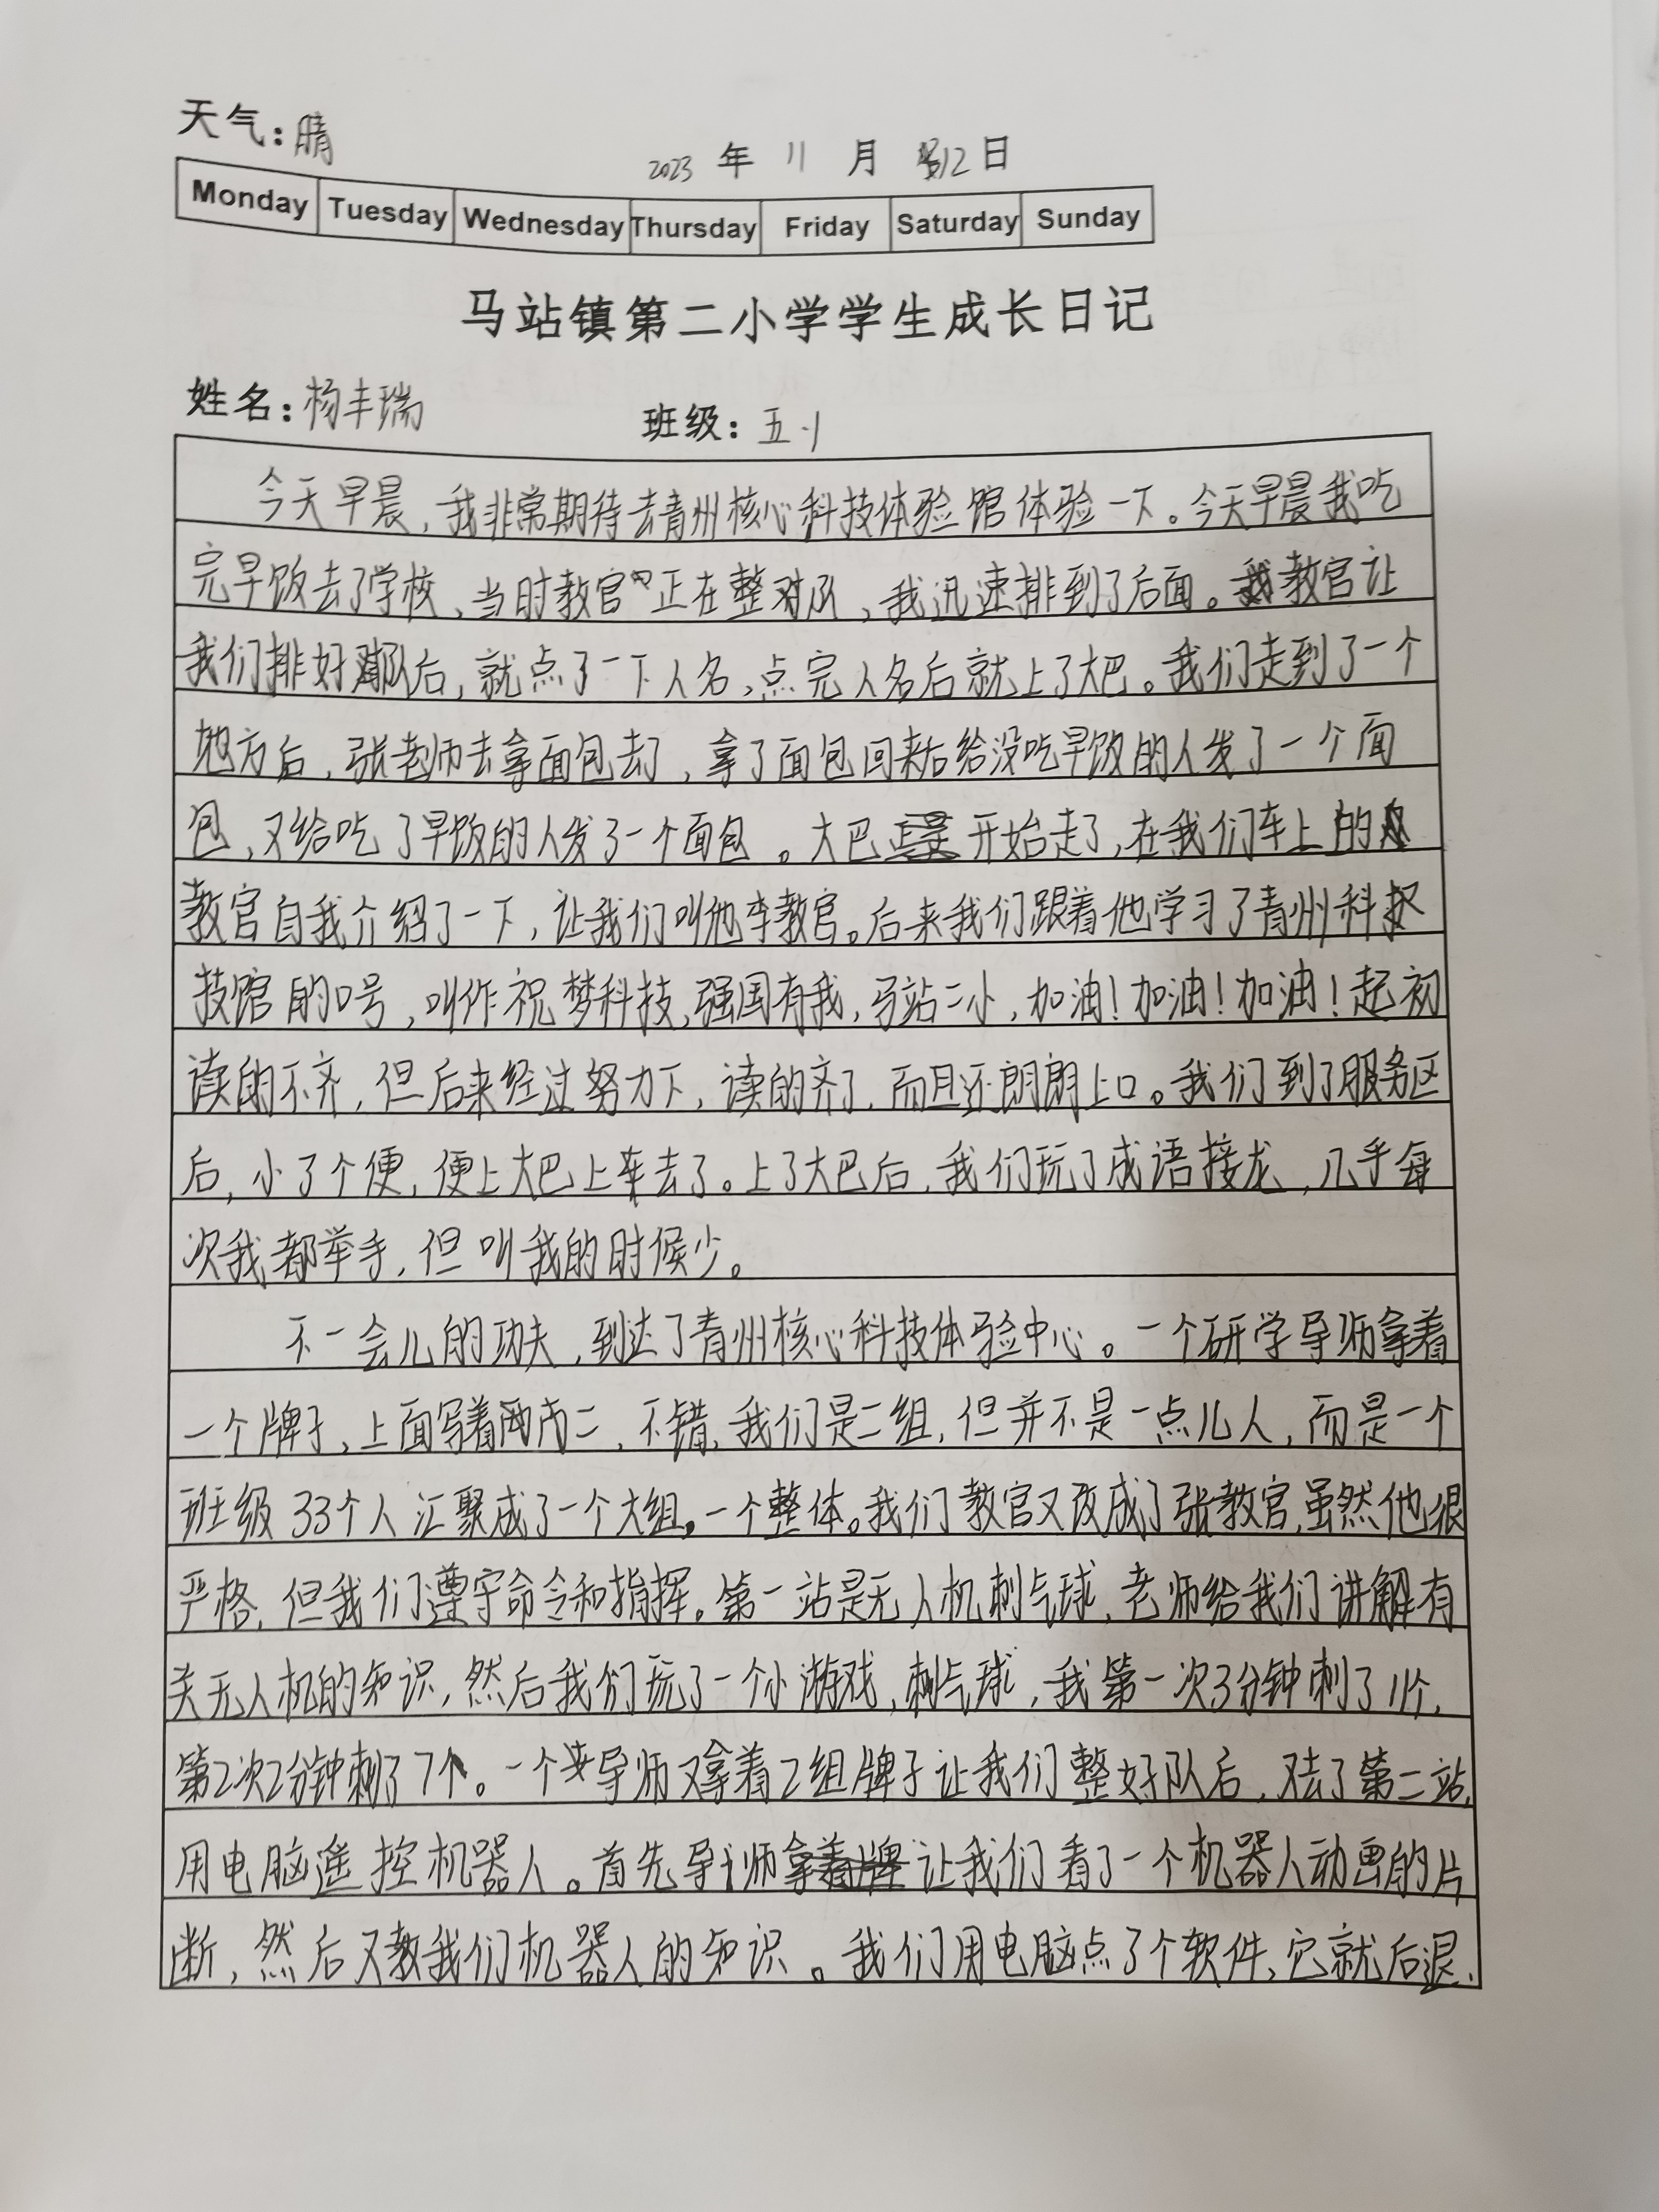 天气：晴
2023 年 11 月 12 日
Monday Tuesday Wednesday Thursday Friday Saturday Sunday
马站镇第二小学学生成长日记
姓名：杨丰瑞 班级：五·1
今天早晨，我非常期待去青州核心科技体验馆体验一下。今天早晨我吃
完早饭去了学校，当时教官正在整队，我迅速排到了后面。教官让
我们排好队后，就点了一下人名，点完人名后就上了大巴。我们走到了一个
地方后，张老师去拿面包去了，拿了面包回来后给没吃早饭的人发了一个面
包，又给吃了早饭的人发了一个面包。大巴开始走了，在我们车上的
教官自我介绍了一下，让我们叫他李教官。后来我们跟着他学习了青州科
技馆的口号，叫作祝梦科技，强国有我，马站二小，加油！加油！加油！起初
读的不齐，但后来经过努力下，读的齐了，而且还朗朗上口。我们到了服务区
后，小了个便，便上大巴上车去了。上了大巴后，我们玩了成语接龙，几乎每
次我都举手，但叫我的时候少。
不一会儿的功夫，到达了青州核心科技体验中心。一个研学导师拿着
一个牌子，上面写着二，不错，我们是二组，但并不是一点儿人，而是一个
班级33个人汇聚成了一个大组，一个整体。我们教官又改成了张教官，虽然他很
严格，但我们遵守命令和指挥。第一站是无人机刺气球，老师给我们讲解有
关无人机的知识，然后我们玩了一个小游戏，刺气球，我第一次3分钟刺了11个，
第2次2分钟刺了7个。一个导师又拿着2组牌子让我们整好队后，去了第二站，
用电脑遥控机器人。首先导师让我们看了一个机器人动画的片
断，然后又教我们机器人的知识。我们用电脑点了个软件，它就后退、